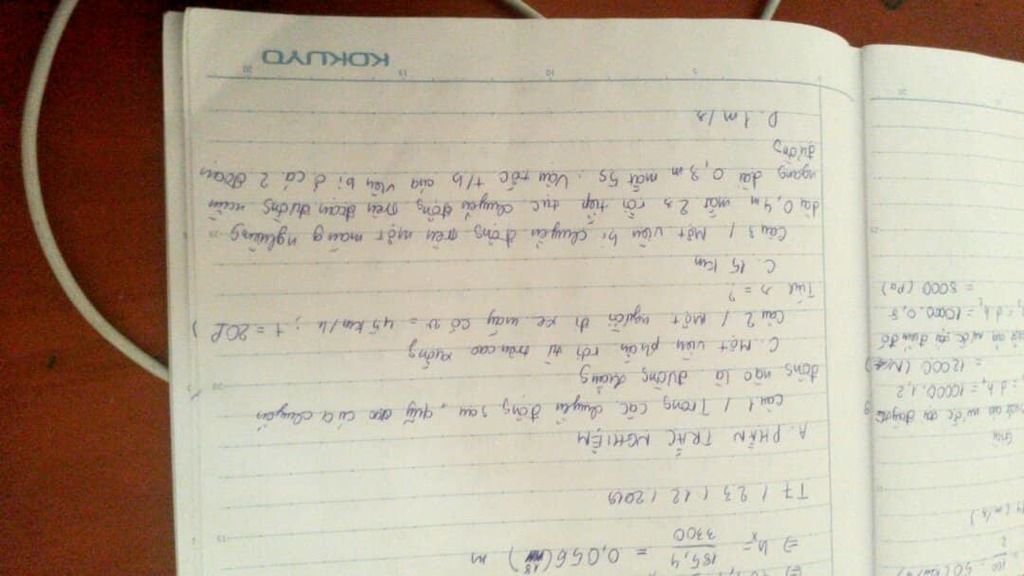 => hₓ = 185,4 / 3300 = 0,056 (m)
T7 / 23 / 12 / 2019
A. PHẦN TRẮC NGHIỆM
Câu 1 / Trong các chuyển động sau, quỹ đạo của chuyển
động nào là đường thẳng
C. Một viên phấn rơi từ trên cao xuống
Câu 2 / Một người đi xe máy có v = 45 km/h ; t = 20P
Tính s = ?
C. 15 km
Câu 3 / Một viên bi chuyển động trên một máng nghiêng
dài 0,4 m mất 2s rồi tiếp tục chuyển động trên đoạn đường nằm
ngang dài 0,3 m mất 5s. Vận tốc t/b của viên bi ở cả 2 đoạn
đường
D. 1 m/s
KOKUYO
Giải
= d h₁ = 10000. 1,2
= 12000
= d h₂ = 10000. 0,8
= 8000 (Pa)